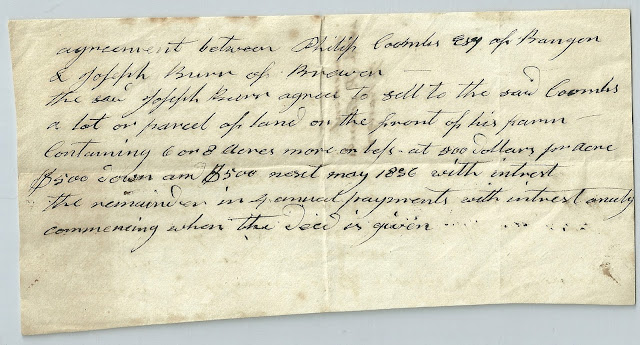 agreement between Philip Coombs Esq of Bangor
& Joseph Burr of Brewer
The said Joseph Burr agree to sell to the said Coombs
a lot or parcel of land on the front of his farm
Containing 6 or 8 Acres more or less at 300 dollars per acre
$500 down and $500 next may 1836 with intrest
the remainder in 4 annual payments with intrest anuly
commencing when the deed is given